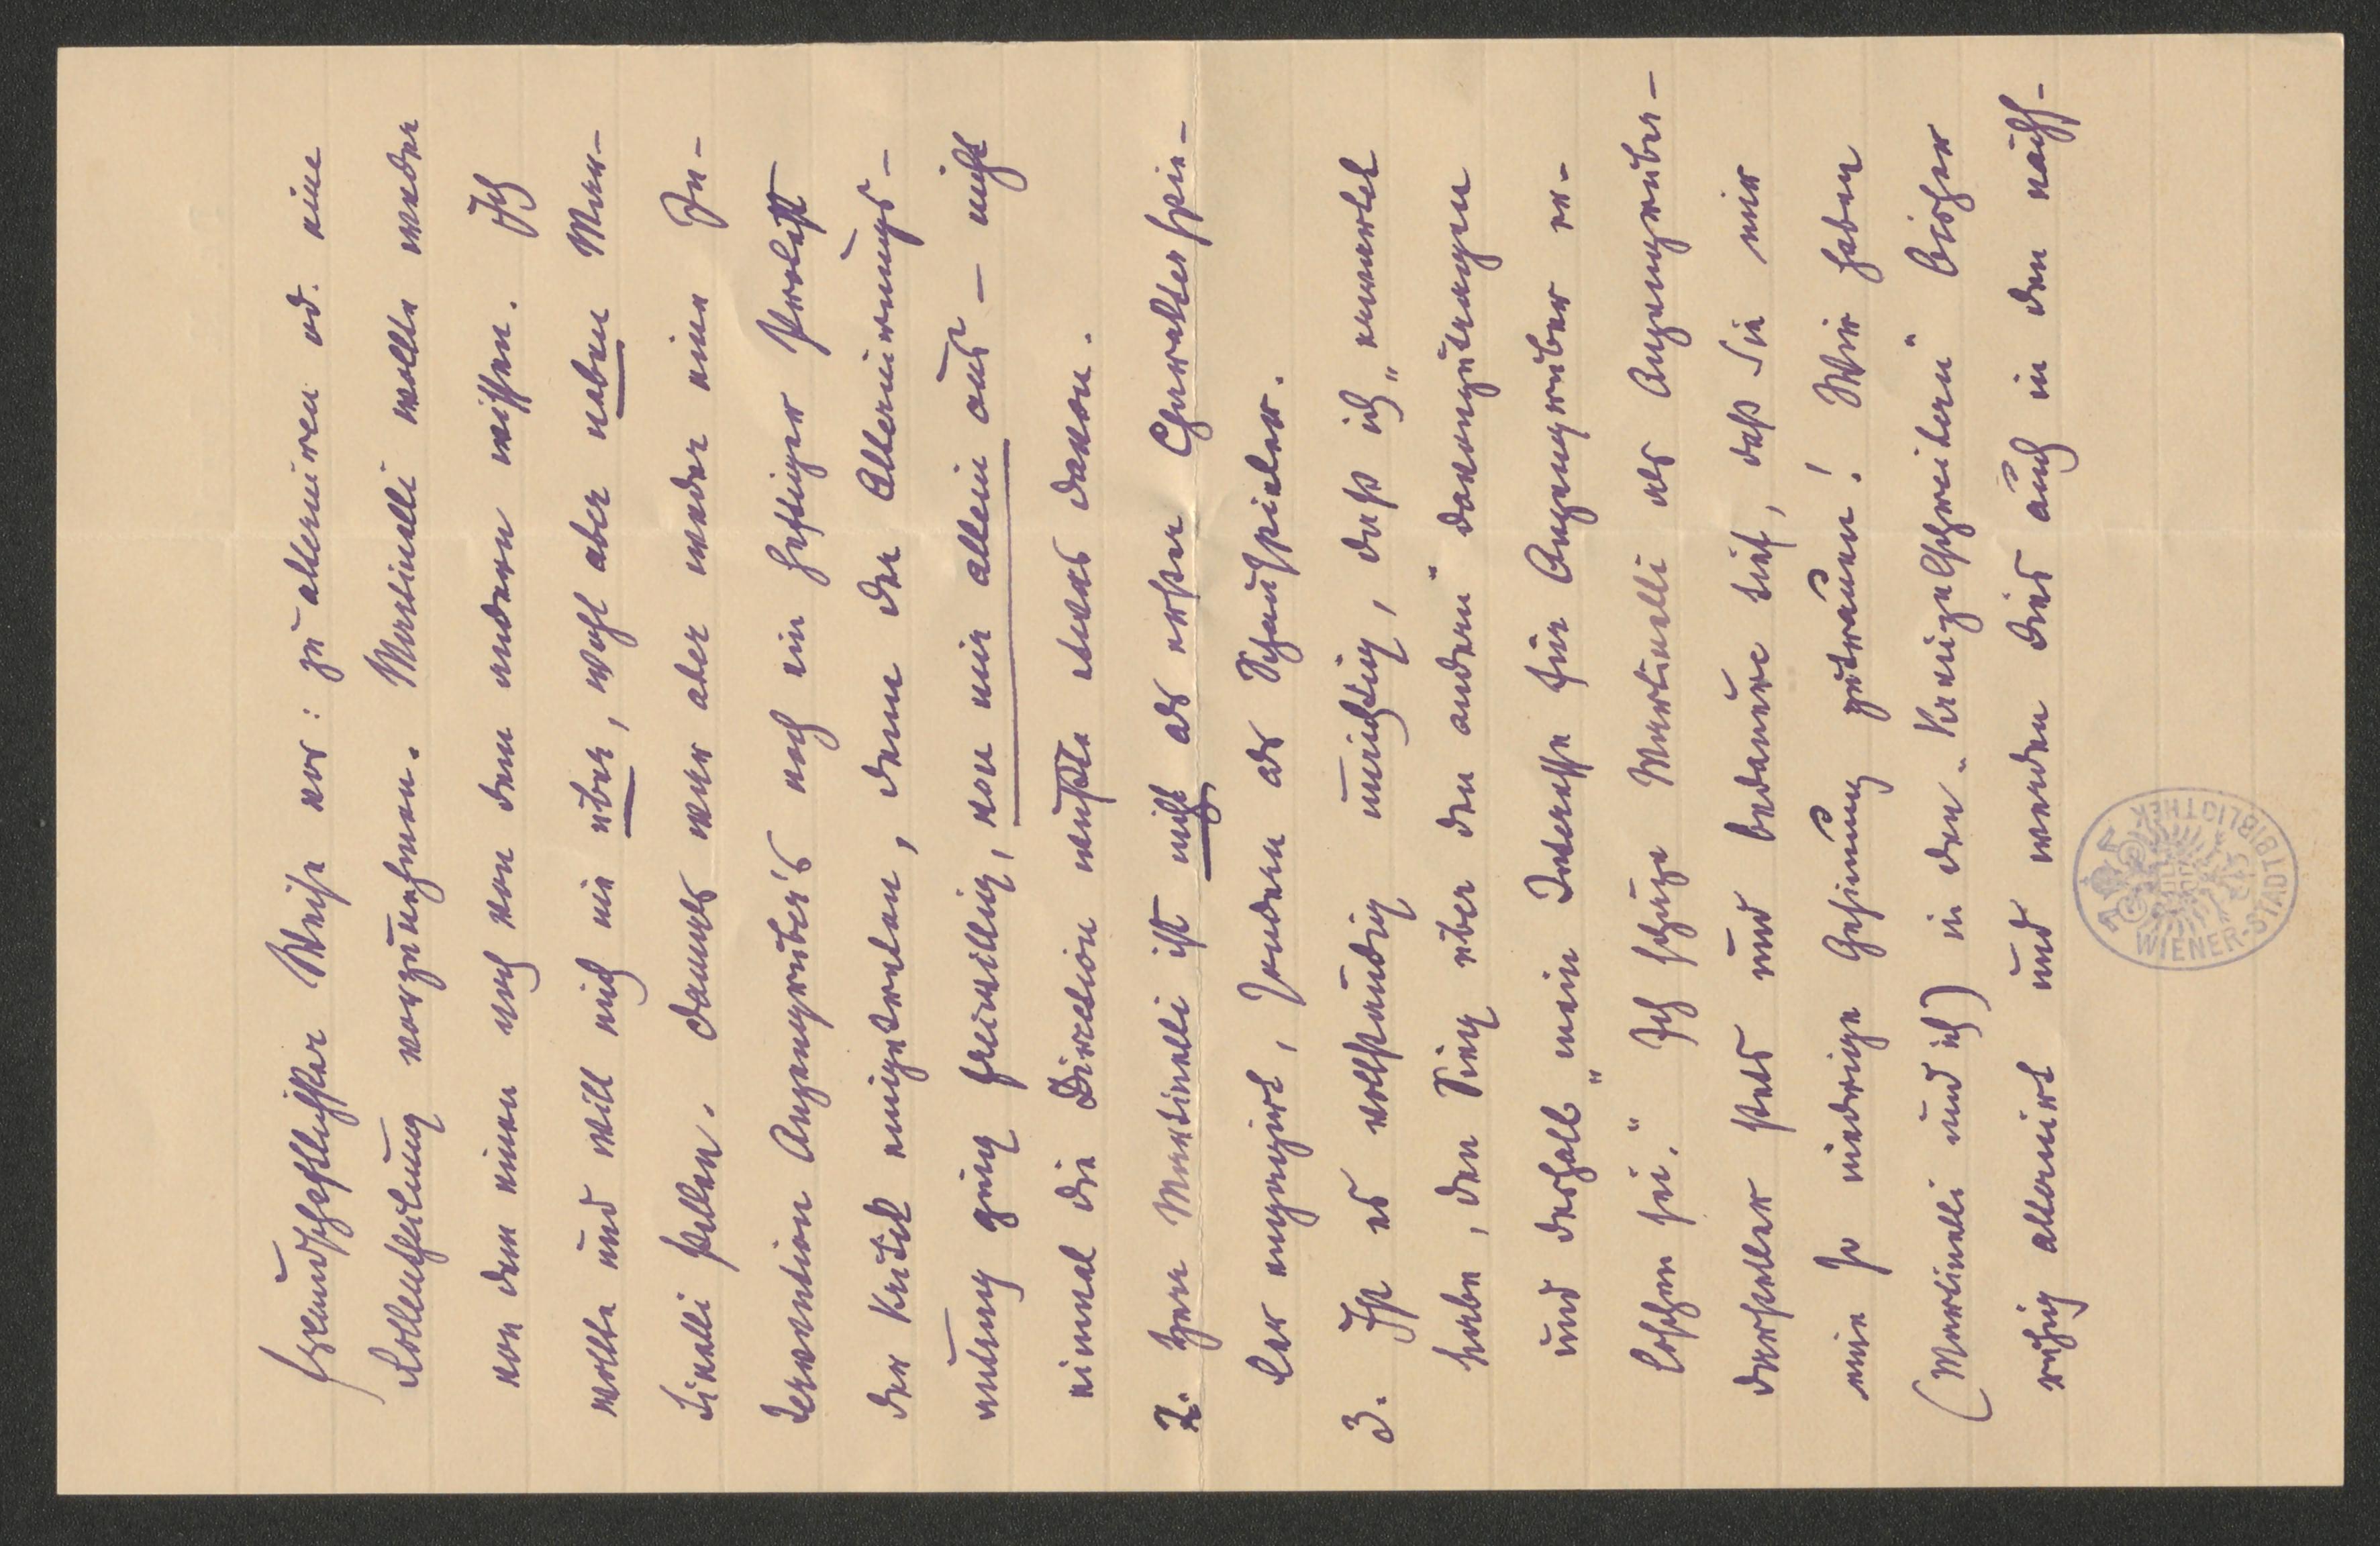 freundschaftlichster Weise vor: zu alterniren od. eine
Rollentheilung vorzunehmen. Martinelli wollte weder
von dem einen noch von dem andern wissen. Ich
wollte und will mich nie über, wohl aber neben Mar-
tinelli stellen. Damals war aber weder eine In-
tervention Anzengruber's noch ein heftiger Protest
der Kritik eingetreten, denn der Alternirungs-
antrag ging freiwillig, von mir allein aus – nicht
einmal die Direction wußte etwas davon.
2. Herr Martinelli ist nicht als erster Charakterspie-
ler engagirt, sondern als Schauspieler.
3. Ist es vollständig unrichtig, daß ich „erwartet
habe, den Sieg über den andern" davonzutragen
und deshalb „mein Interesse für Anzengruber er-
loschen sei." Ich schätze Martinelli als Anzengruber-
darsteller stets und bedaure tief, daß Sie mir
eine so niedrige Gesinnung zutrauen! Wir haben
(Martinelli und ich) in den „Kreuzelschreibern" bisher
ruhig alternirt und werden dies auch in den näch-
WIENER-STADTBIBLIOTHEK